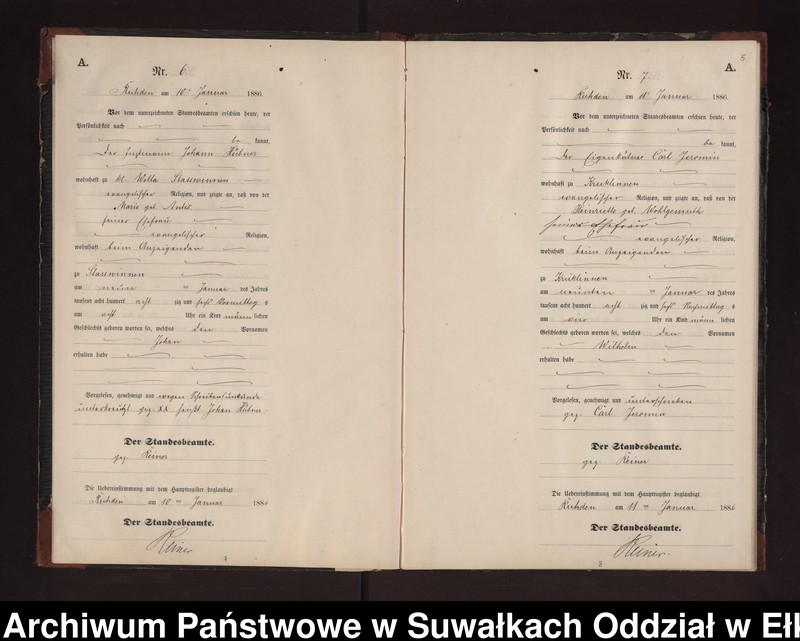 A.
Nr. 6
Ruhden am 10ten Januar 1886.
Vor dem unterzeichneten Standesbeamten erschien heute, der
Persönlichkeit nach
be kannt,
Der Johann Hübner
wohnhaft zu kl. Wolla Stasswinnen
evangelischer Religion, und zeigte an, daß von der
Marie geb.
seiner Ehefrau
evangelischer Religion,
wohnhaft beim Anzeigenden
zu Stasswinnen
am neun ten Januar des Jahres
tausend acht hundert acht zig und sechs Vormittag s
um acht Uhr ein Kind männ lichen
Geschlechts geboren worden sei, welches den Vornamen
Johan
erhalten habe
Vorgelesen, genehmigt und wegen Schreibensunkunde
unterkreuzt gez. XXX heißt Johan Hübner
Der Standesbeamte.
gez. Reiner
Die Uebereinstimmung mit dem Hauptregister beglaubigt
Ruhden am 10 ten Januar 1886
Der Standesbeamte.
Reiner
A.
8
Nr. 7
Ruhden am Januar 1886.
Vor dem unterzeichneten Standesbeamten erschien heute, der
Persönlichkeit nach
be kannt,
Der Eigenkätner Carl Jeromin
wohnhaft zu Kruklinnen
evangelischer Religion, und zeigte an, daß von der
Heinriette geb. Wohlgemuth
seiner Ehefrau
evangelischer Religion,
wohnhaft beim Anzeigenden
zu Kruklinnen
am neunten ten Januar des Jahres
tausend acht hundert acht zig und sechs Nachmittag s
um vier Uhr ein Kind männ lichen
Geschlechts geboren worden sei, welches den Vornamen
Wilhelm
erhalten habe
Vorgelesen, genehmigt und unterschrieben
gez. Carl Jeromin
Der Standesbeamte.
gez. Reiner
Die Uebereinstimmung mit dem Hauptregister beglaubigt
Ruhden am 11 ten Januar 1886
Der Standesbeamte.
Reiner.
Archiwum Państwowe w Suwałkach Oddział w Eł